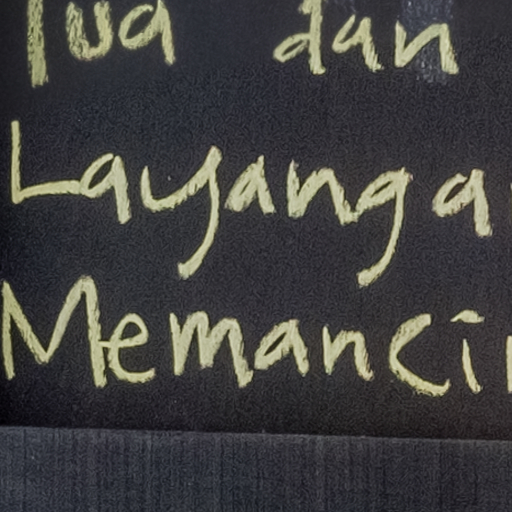 Tua dan
Layanga
Memanci